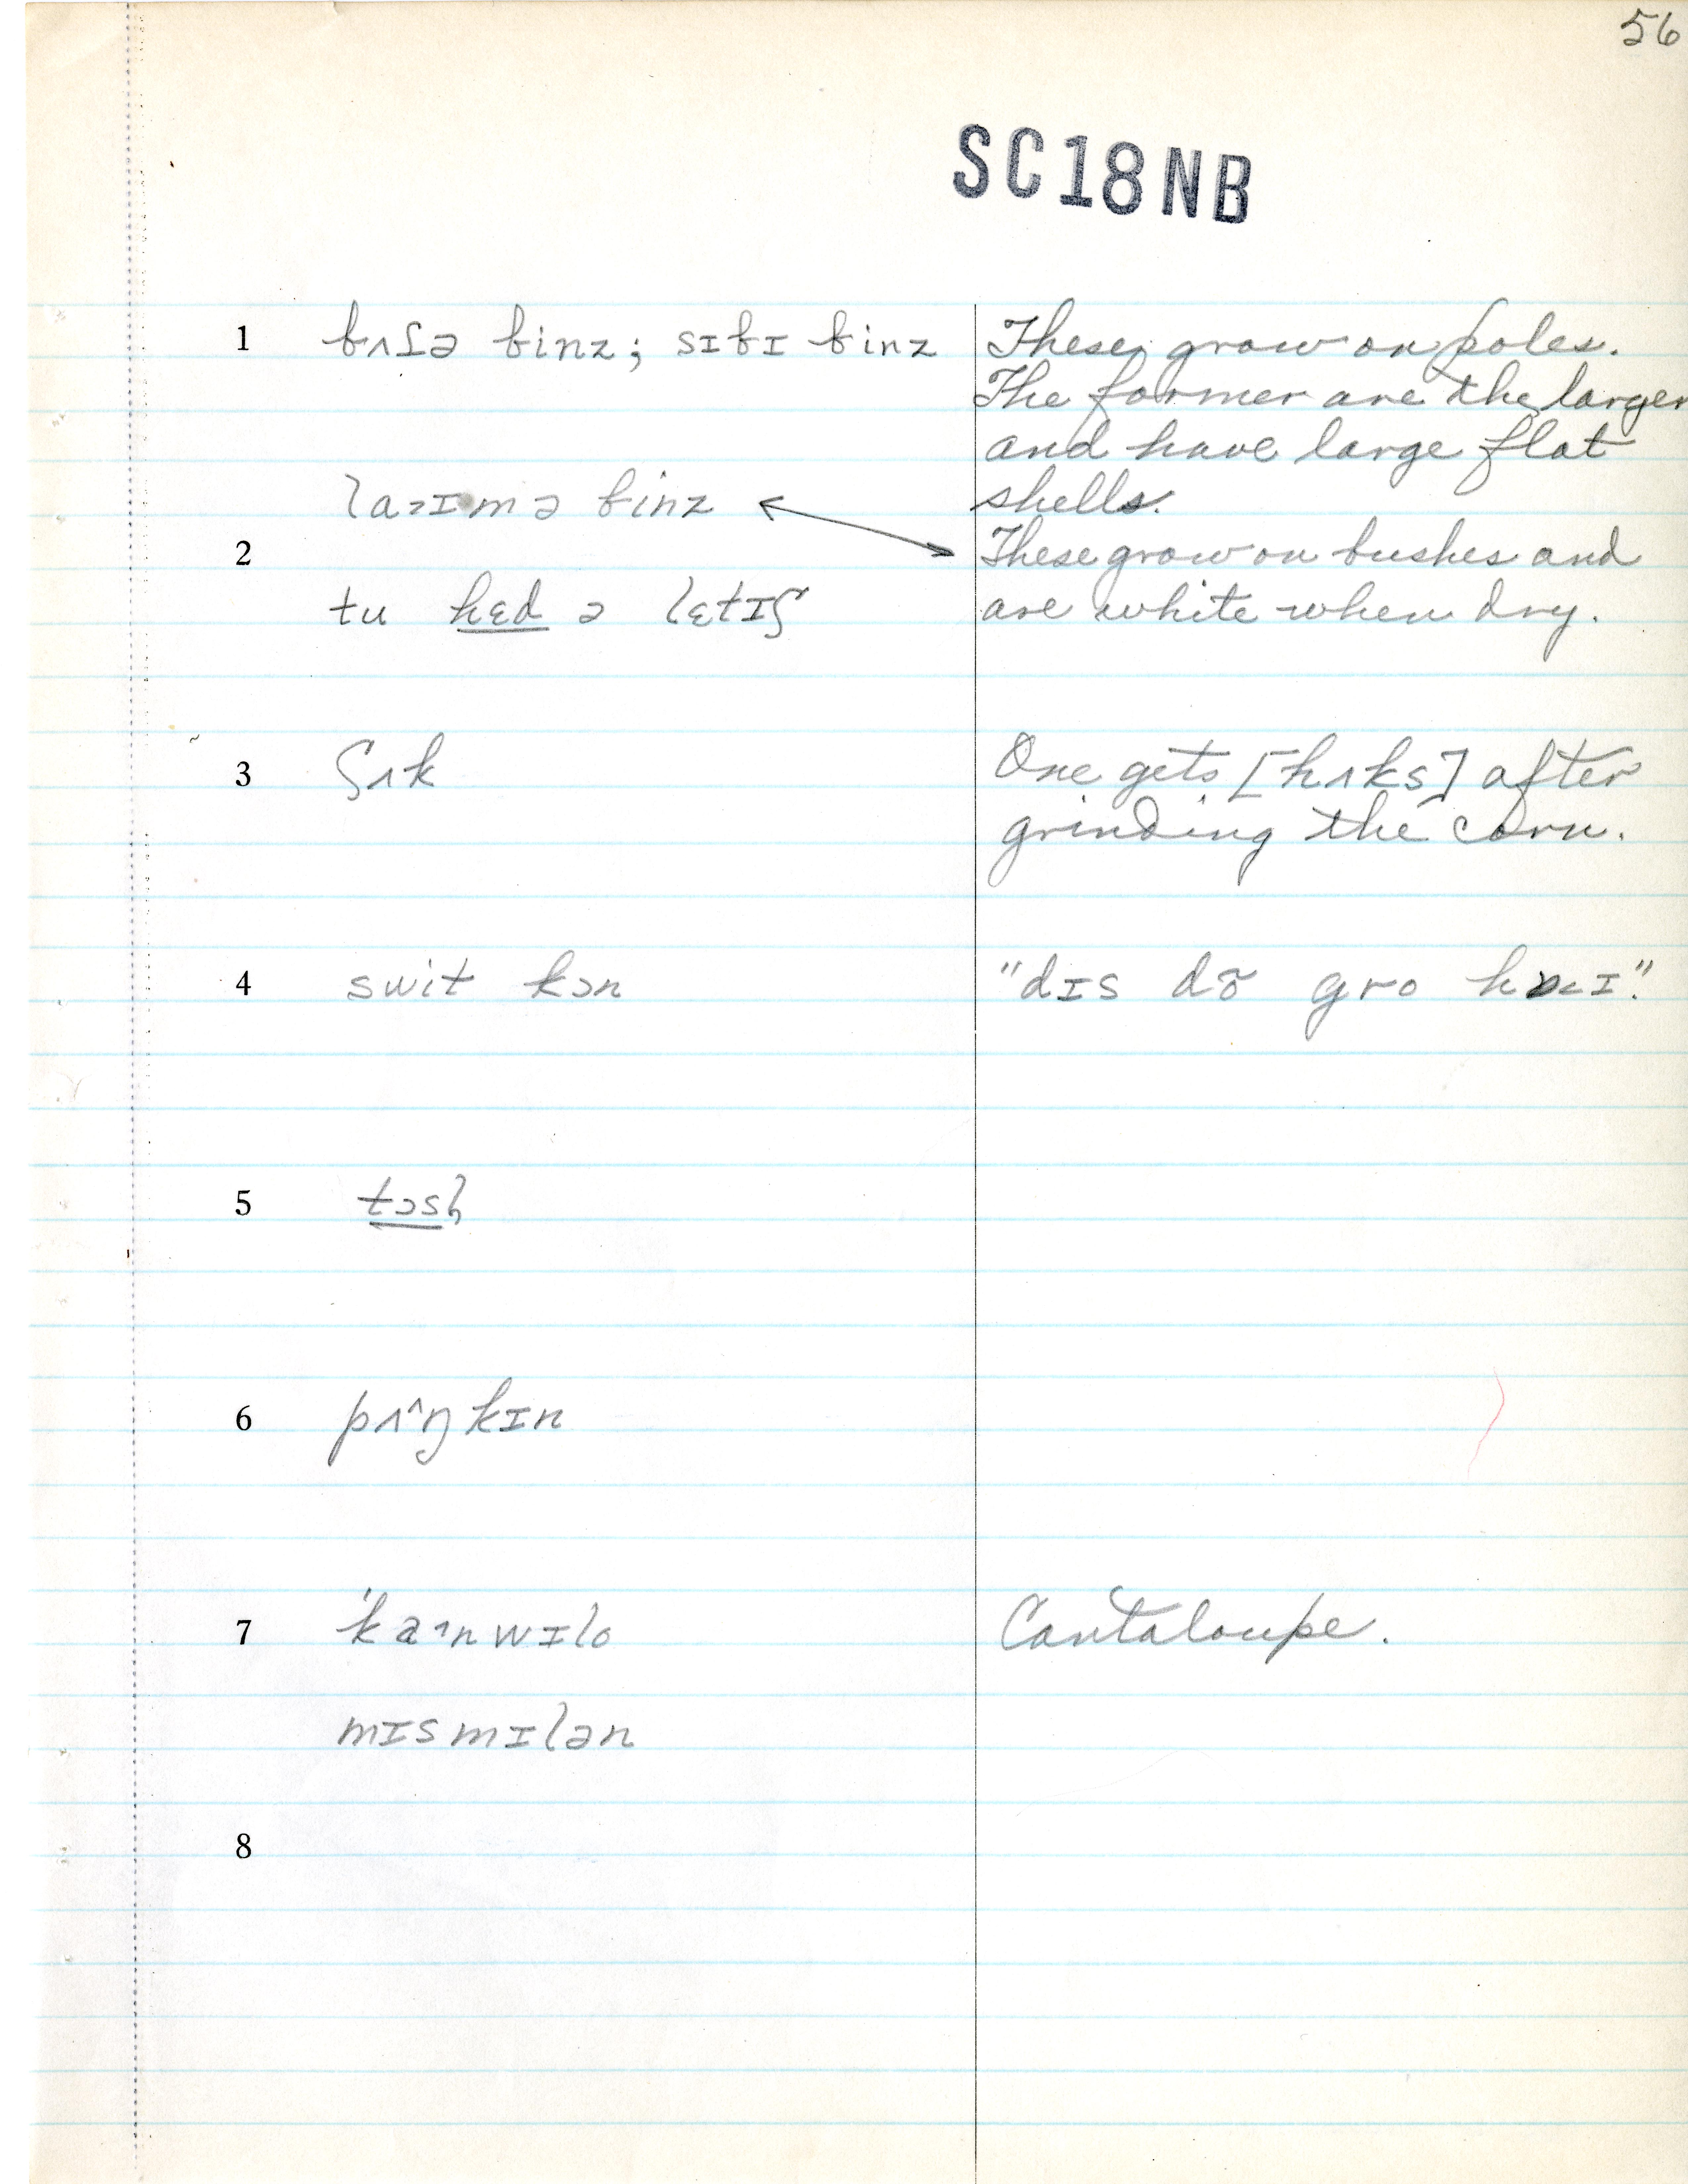 56
SC18NB
1 bʌʃə binz; sɪbɪ binz
These grow on poles.
The former are the larger
and have large flat
shells.
laɪmə binz
2 These grow on bushes and
are white when dry.
tu hɛd ə lɛtɪʃ
3 ʃʌk
One gets [hʌks] after
grinding the corn.
4 swit kɔn
"dɪs dõ gro
5 tɔsl̩
6 pʌ^ŋkɪn
7 'kaˑnwɪlo
Cantaloupe.
mɪsmɪlən
8